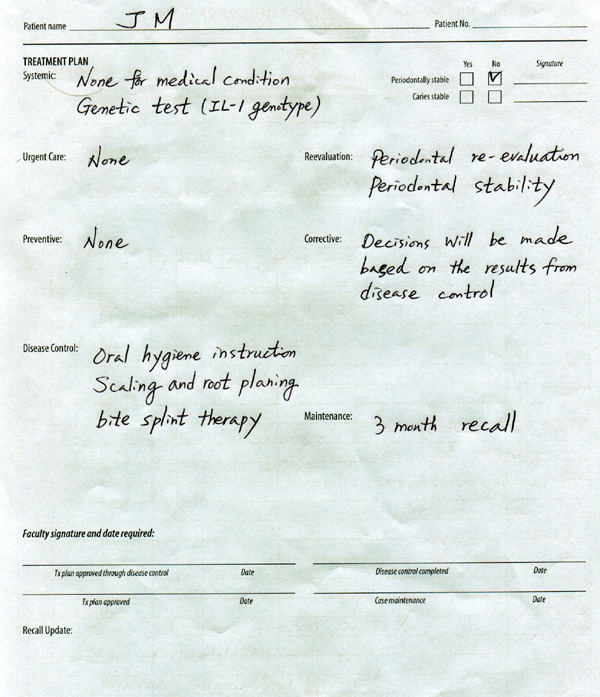 Patient name JM Patient No.
TREATMENT PLAN
Yes No Signature
Systemic: None for medical condition
Genetic test (IL-1 genotype)
Periodontally stable ✓
Caries stable
Urgent Care: None
Reevaluation: Periodontal re-evaluation
Periodontal stability
Preventive: None
Corrective: Decisions will be made
based on the results from
disease control
Disease Control: Oral hygiene instruction
Scaling and root planing
bite splint therapy
Maintenance: 3 month recall
Faculty signature and date required:
Tx plan approved through disease control Date Disease control completed Date
Tx plan approved Date Case maintenance Date
Recall Update: